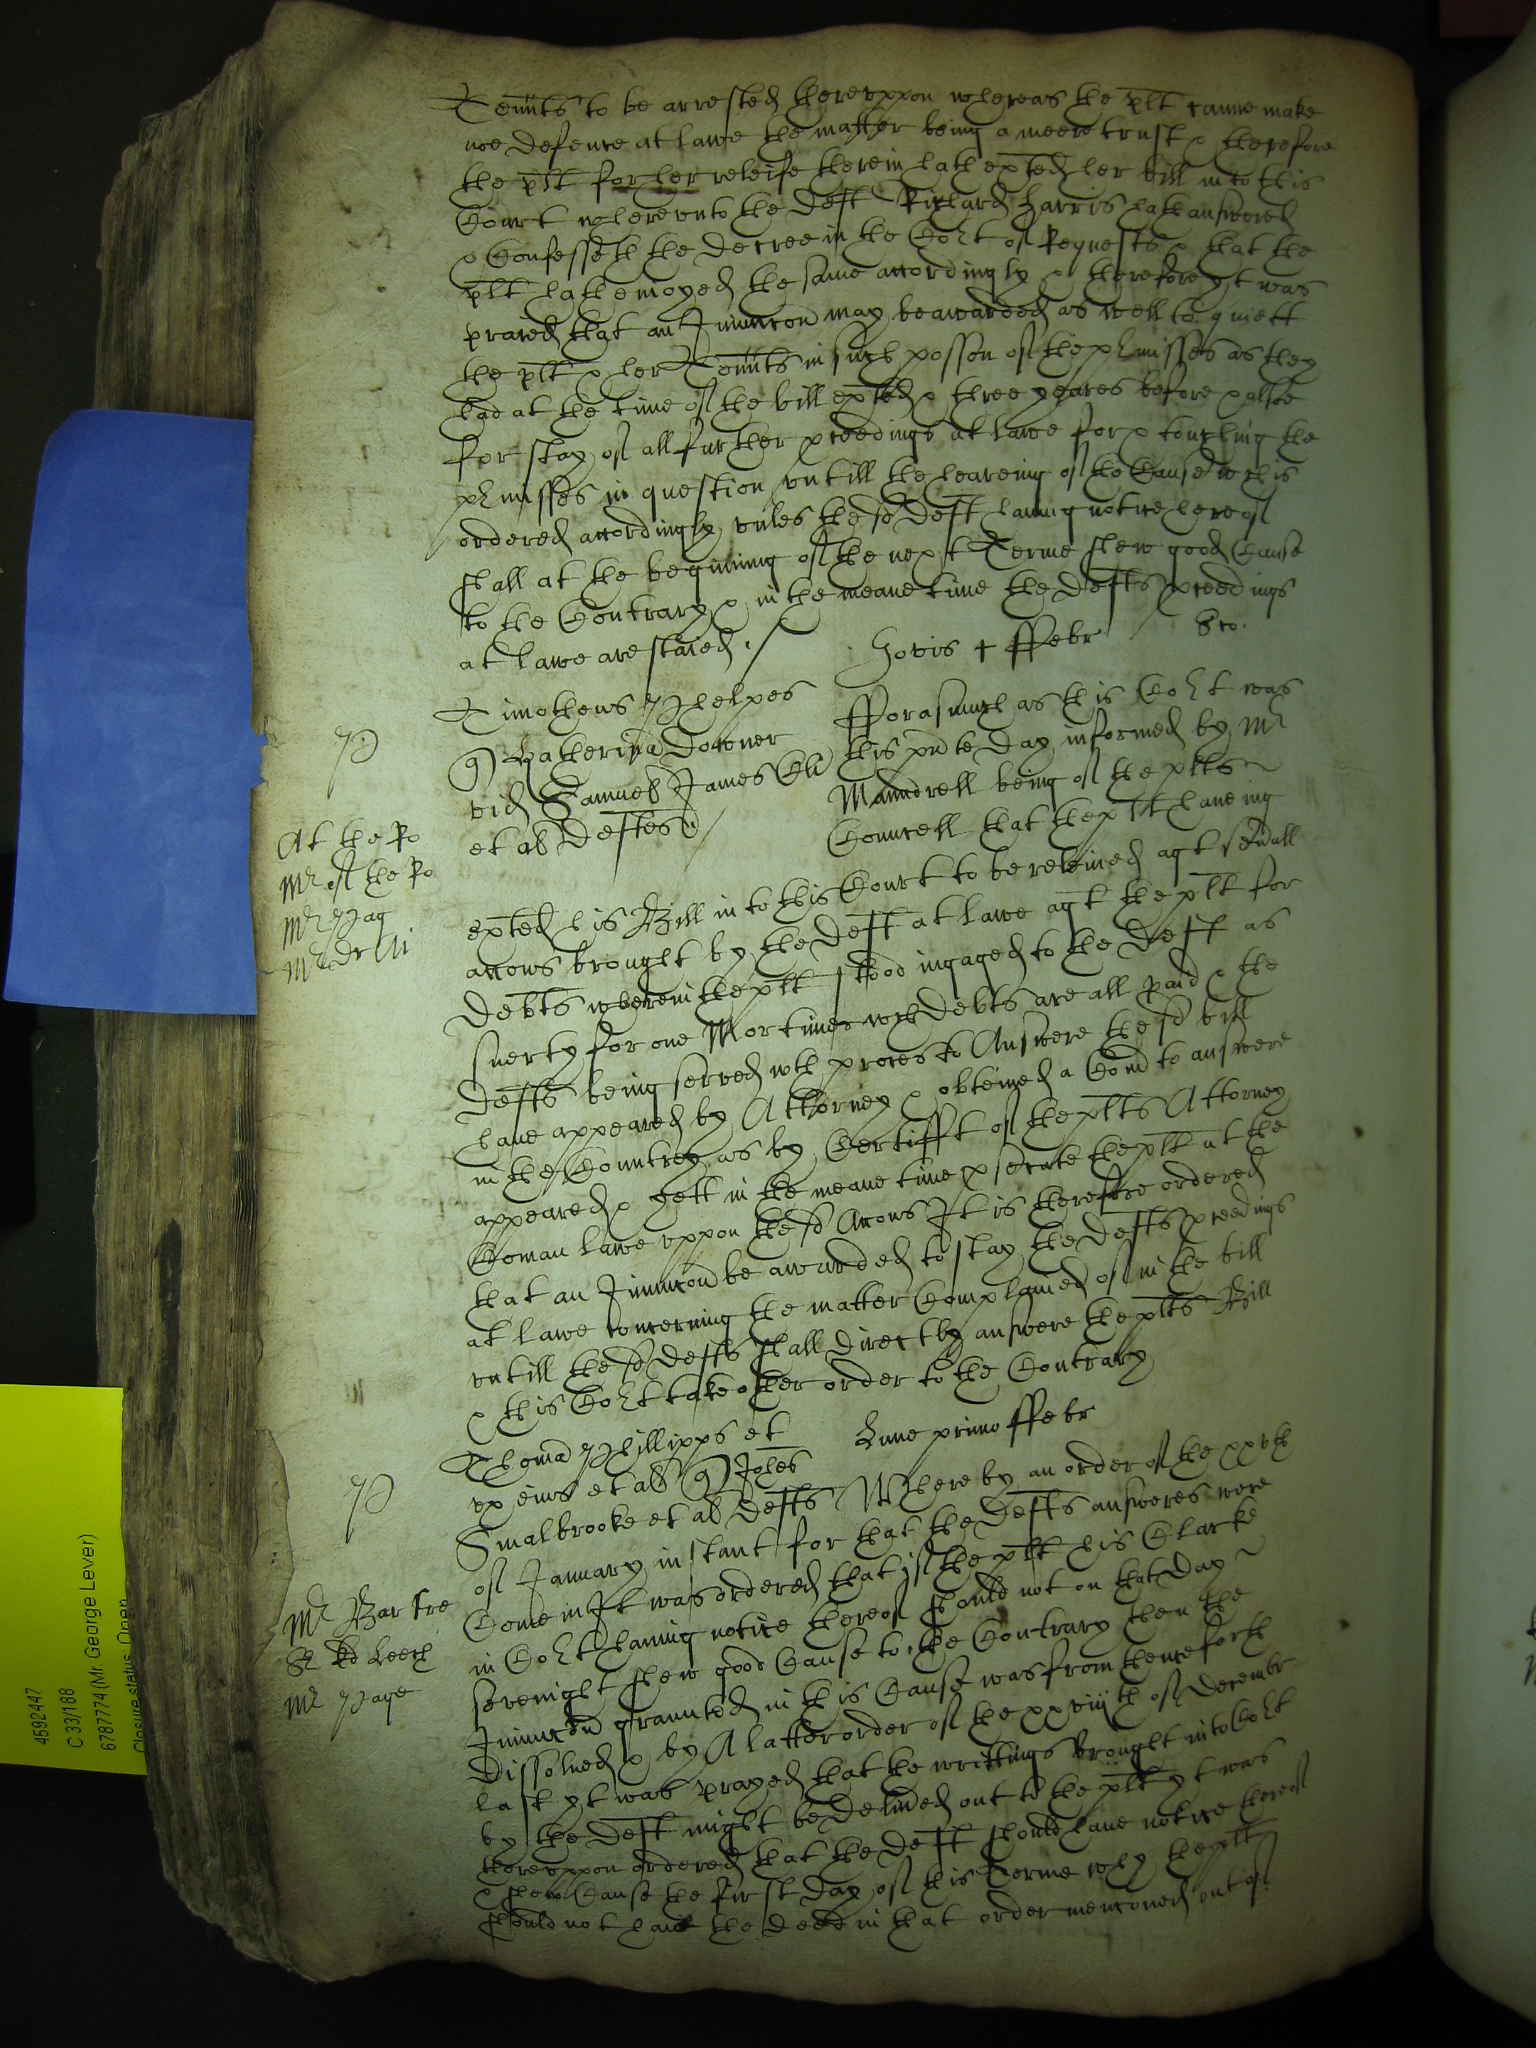 Tenn̄ts to be arrested therevppon whereas the p̄lt canne make
noe defence at lawe the matter being a meere trust & therefore
the p̄lt for her releife therein hath exħted her bill in to this
Court wherevnto the deft Richard Harris hath answered
& Confesseth the decree in the Co͛t of Requests & that the
p̄lt hath enioyed the same accordingly & therefore yt was
praied that an Iniunccon may be awarded as well to quiett
the p̄lt & her Tenn̄ts in such posson of the p͛misses as they
had at the time of the bill exħted & three yeares before & alsoe
for stay of all further p̱ceedings at lawe for & touching the
p͛misses in question vntill the heareing of the Cause wch is
ordered accordingly vnles the sd deft haueing notice hereof
shall at the begining of the next Terme shew good Cause
to the Contrary & in the meane time the defts p̱ceedings
at lawe are staied ./
Jovis 4 ffebr
Timotheus Phelpes
q) Katherina Downer
vid Samuel James
et al Deftes
fforasmuch as this Co͛t was
this pn̄te day informed by Mr
Maundrell being of the plts
Councell that the plt haueing
exħted his Bill in to this Court to be releiued agt seu͛all
accons brought by the deft at lawe agt the plt for
debts wherein the plt stood ingaged to the deft as
suerty for one Mortimer wch debts are all paid & the
defts being served wth proces to Answere the sd bill
haue appeared by Attorney & obteined a Com̄ to answere
in the Countrey as by Certifft of the plts Attorney
appeared & yett in the meane time p̱secute the plt at the
Com̄on lawe vppon the sd Accons It is therefore ordered
that an Iniunccon be awarded to stay the defts p̱ceedings
at lawe concerning the matter Complained of in the bill
vntill the sd defts shall directly answere the plts Bill
& this Co͛t take other order to the Contrary
P
At the Ro
Mr of the Ro
Mr Pag
Thoma Phillipps et
vx eius et al q) Johēs
Smalbrooke et al defts
Lune primo ffebr
Whereby an order of the xxvth
of January instant for that the defts answeres were
Come in It was ordered that if the plt his Clarke
in Co͛t haueing notice thereof should not on that day
sevenight shew good Cause to the Contrary then the
Iniunccon graunted in this Cause was from thenceforth
dissolued & by A latter order of the xxviijth of decembr
last yt was prayed that the writtings brought into Co͛t
by the deft might be deliued out to the p̄lt yt was
therevppon ordered that the deft should haue notice thereof
& shew Cause the first day of this Terme why the plt
should not haue the deed in that order menconed out of
P
Mr Bar Tre
Sr Ed Leech
Mr Page
4592447
C 33/188
6787774 (Mr. George Lever)
Closure status: Open